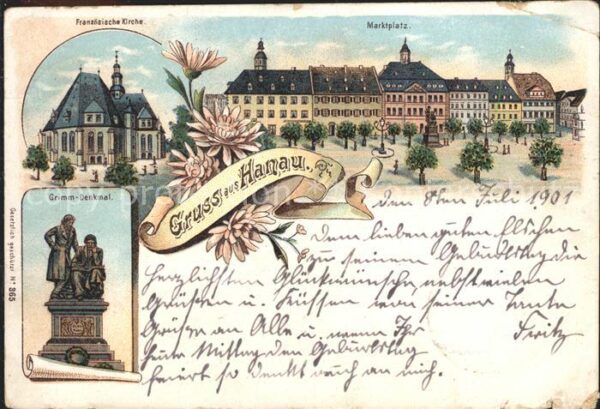 Französische Kirche.
Marktplatz.
Gruss aus Hanau.
Grimm-Denkmal.
Gesetzlich geschützt Nº 365
den 8ten Juli 1901
Dem lieben guten Elschen
zu seinem Geburtstag die
herzlichsten Glückwünsche nebst vielen
Grüßen u. Küssen von seiner Tante
Grüße an Alle u. wenn Ihr Fritz
heute Mittag den Geburtstag
feiert so denkt auch an mich.